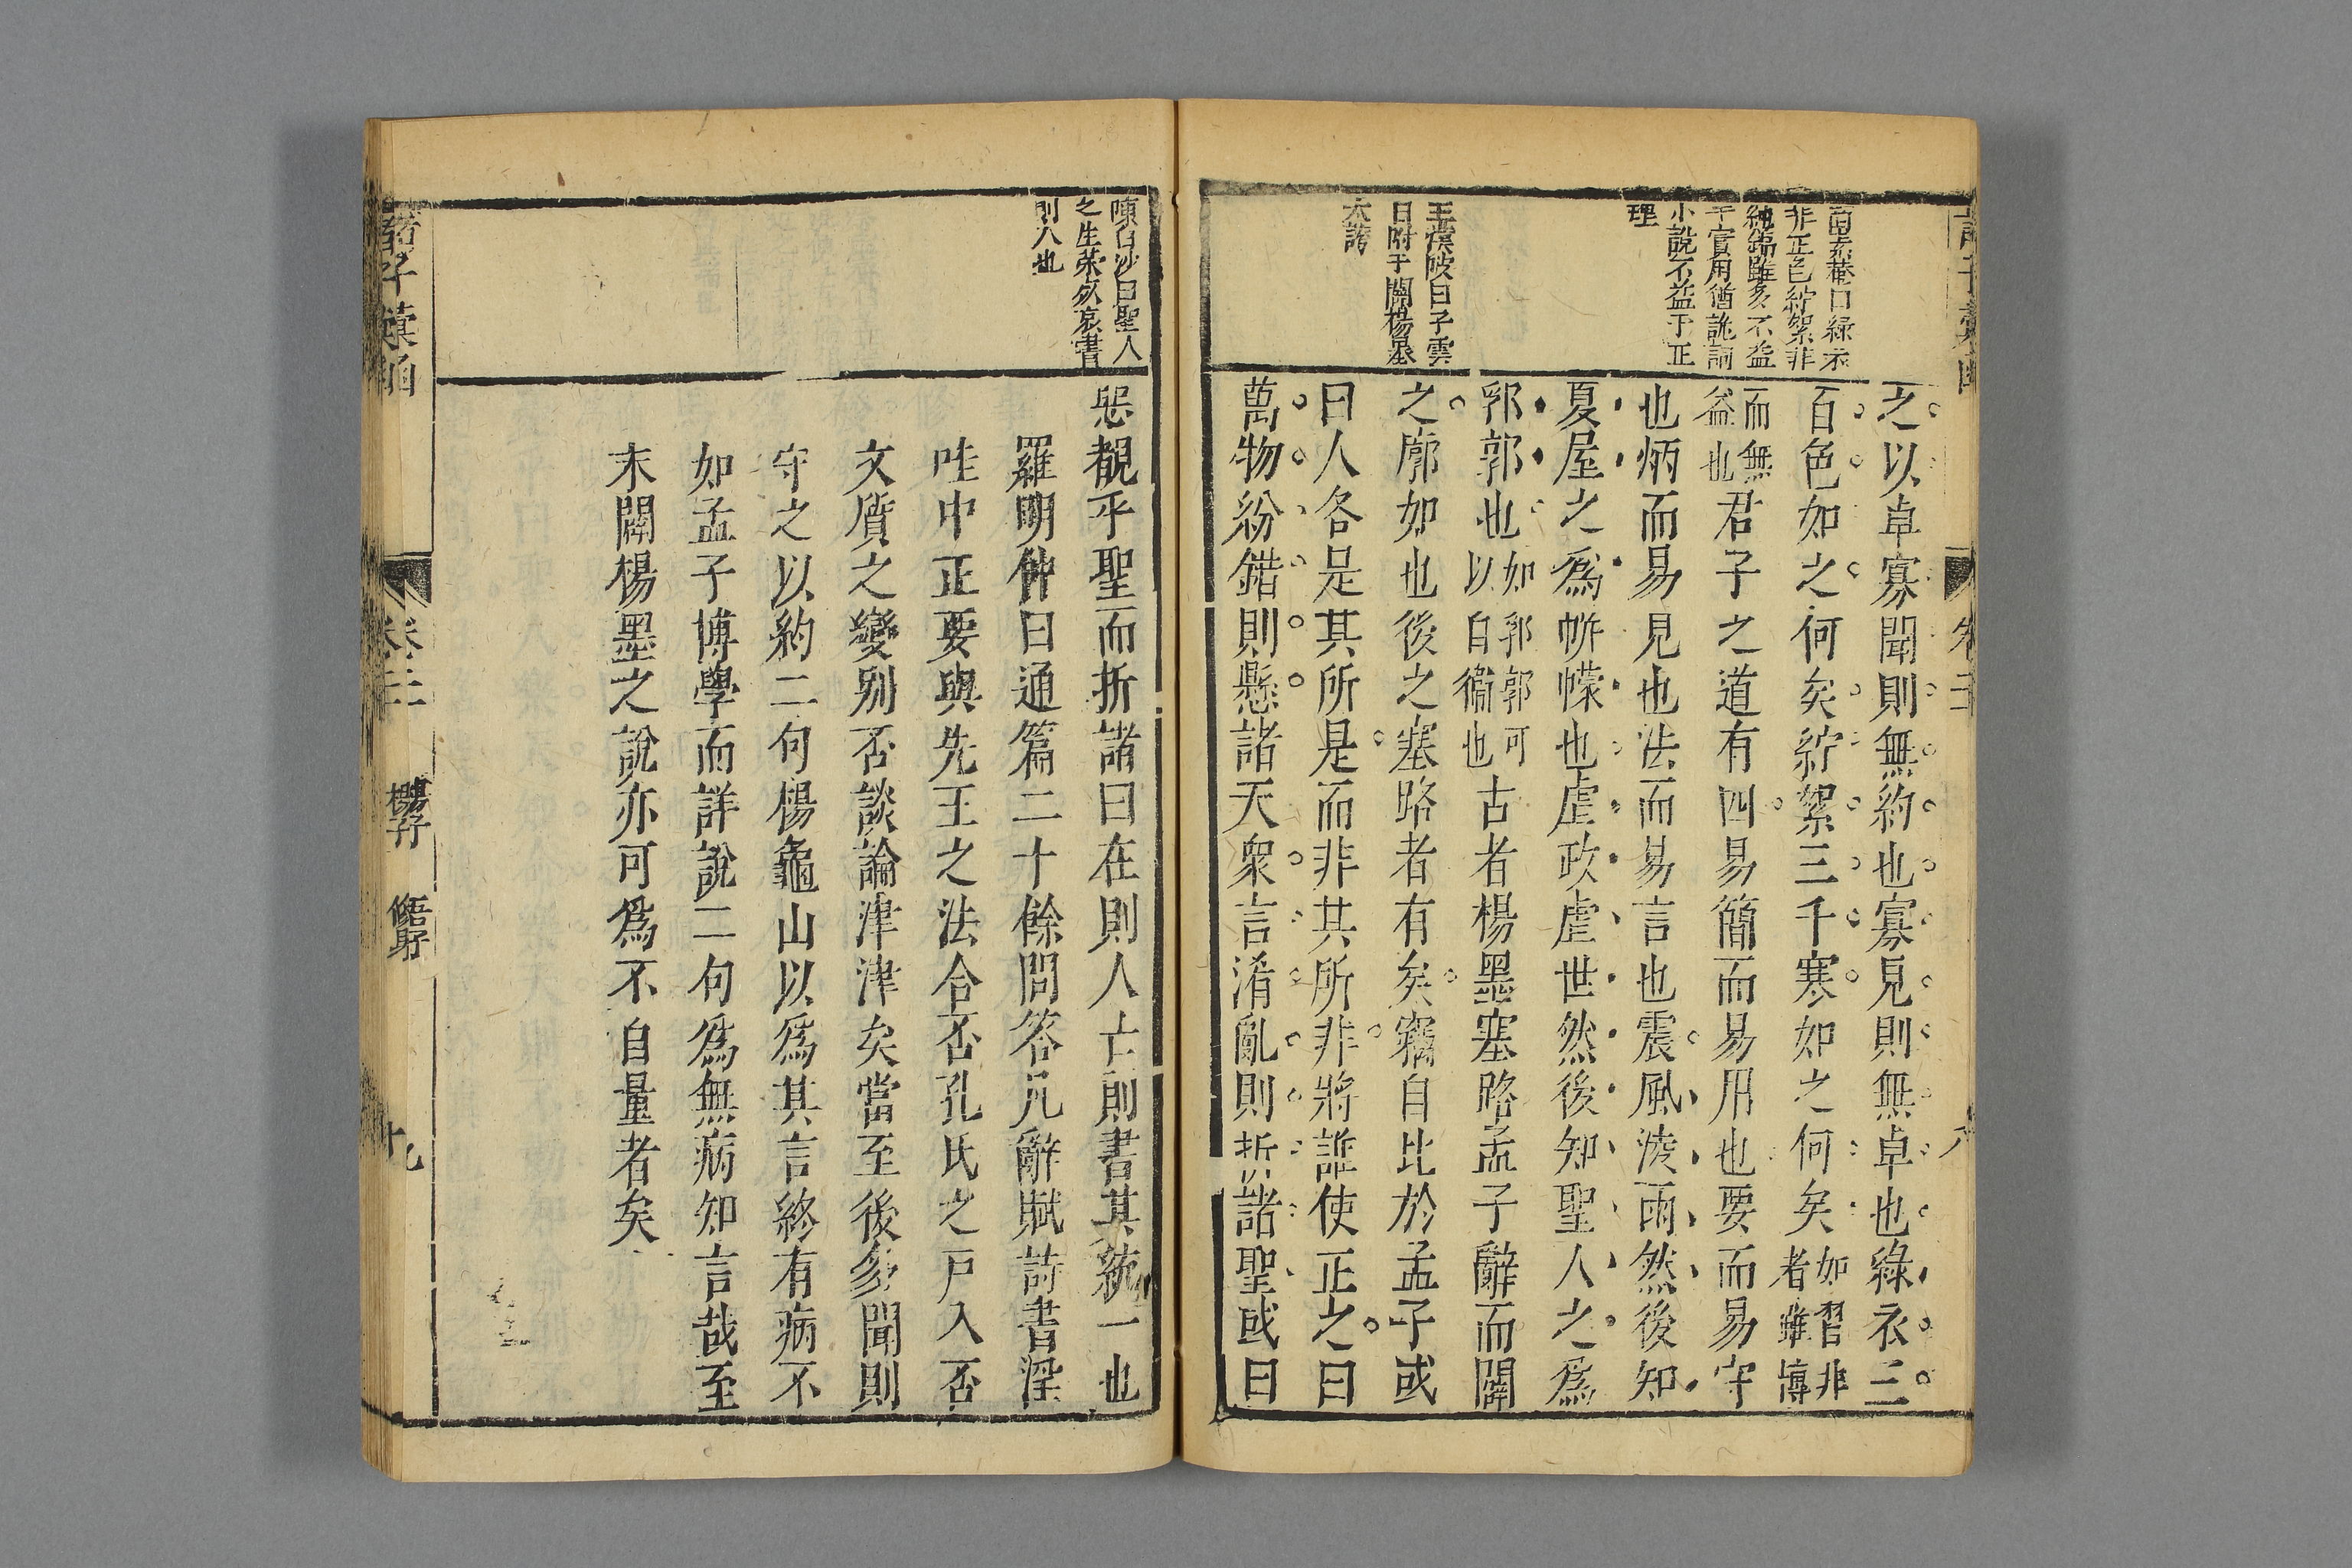 非正色紵絮非
純綿雖多不益
于實用猶詭詞
小說不益于正
理
王渼陂曰子雲
日附于闢楊墨
太誇
之以卓寡聞則無約也寡見則無卓也綠衣三
百色如之何矣紵絮三千寒如之何矣如習非
者雖博
而無
益也君子之道有四易簡而易用也要而易守
也炳而易見也法而易言也震風淩雨然後知
夏屋之爲帡幪也虐政虐世然後知聖人之爲
郛郭也如郛郭可
以自衞也古者楊墨塞路孟子辭而闢
之廓如也後之塞路者有矣竊自比於孟子或
曰人各是其所是而非其所非將誰使正之曰
萬物紛錯則懸諸天衆言淆亂則折諸聖或曰
陳白沙曰聖人
之生榮死哀書
則人也
惡覩乎聖而折諸曰在則人亡則書其統一也
羅明仲曰通篇二十餘問答凡辭賦詩書淫
哇中正要與先王之法合否孔氏之戸入否
文質之變別否談論津津矣當至後多聞則
守之以約二句楊龜山以爲其言終有病不
如孟子博學而詳說二句爲無病知言哉至
末闢楊墨之說亦可爲不自量者矣
諸子彙函
卷二
揚子
脩身
十九